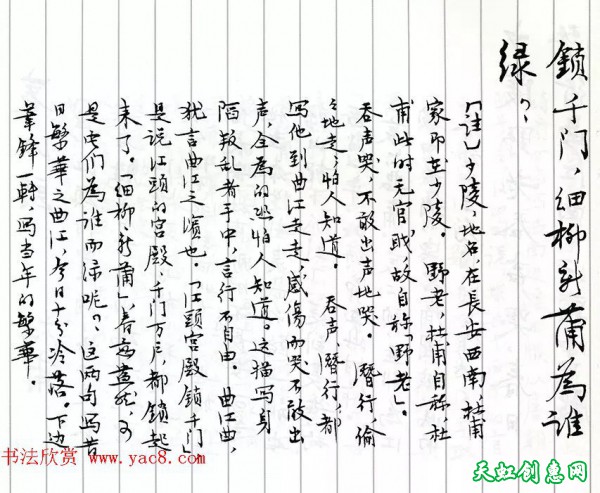 鎖千门，细柳新蒲為谁
绿？
「註」少陵，地名，在長安西南，杜甫
家即在少陵。野老，杜甫自称，杜
甫此时无官职，故自称「野老」。
吞声哭，不敢出声地哭。潛行，偷
偷地走，怕人知道。吞声潛行，都
写他到曲江走走，感傷而哭不敢出
声，全為的恐怕人知道。这描写身
陷叛乱者手中，言行不自由。曲江曲，
犹言曲江之濱也。「江頭宮殿鎖千门」
是说江頭的宮殿，千门万户，都鎖起
来了。「细柳新蒲」，春
是它们為谁而绿呢？这两句写昔
日繁華之曲江，今日十分冷落。下边
筆鋒一轉，写当年的繁華。
书法欣赏 www.yac8.com
天虹创意网